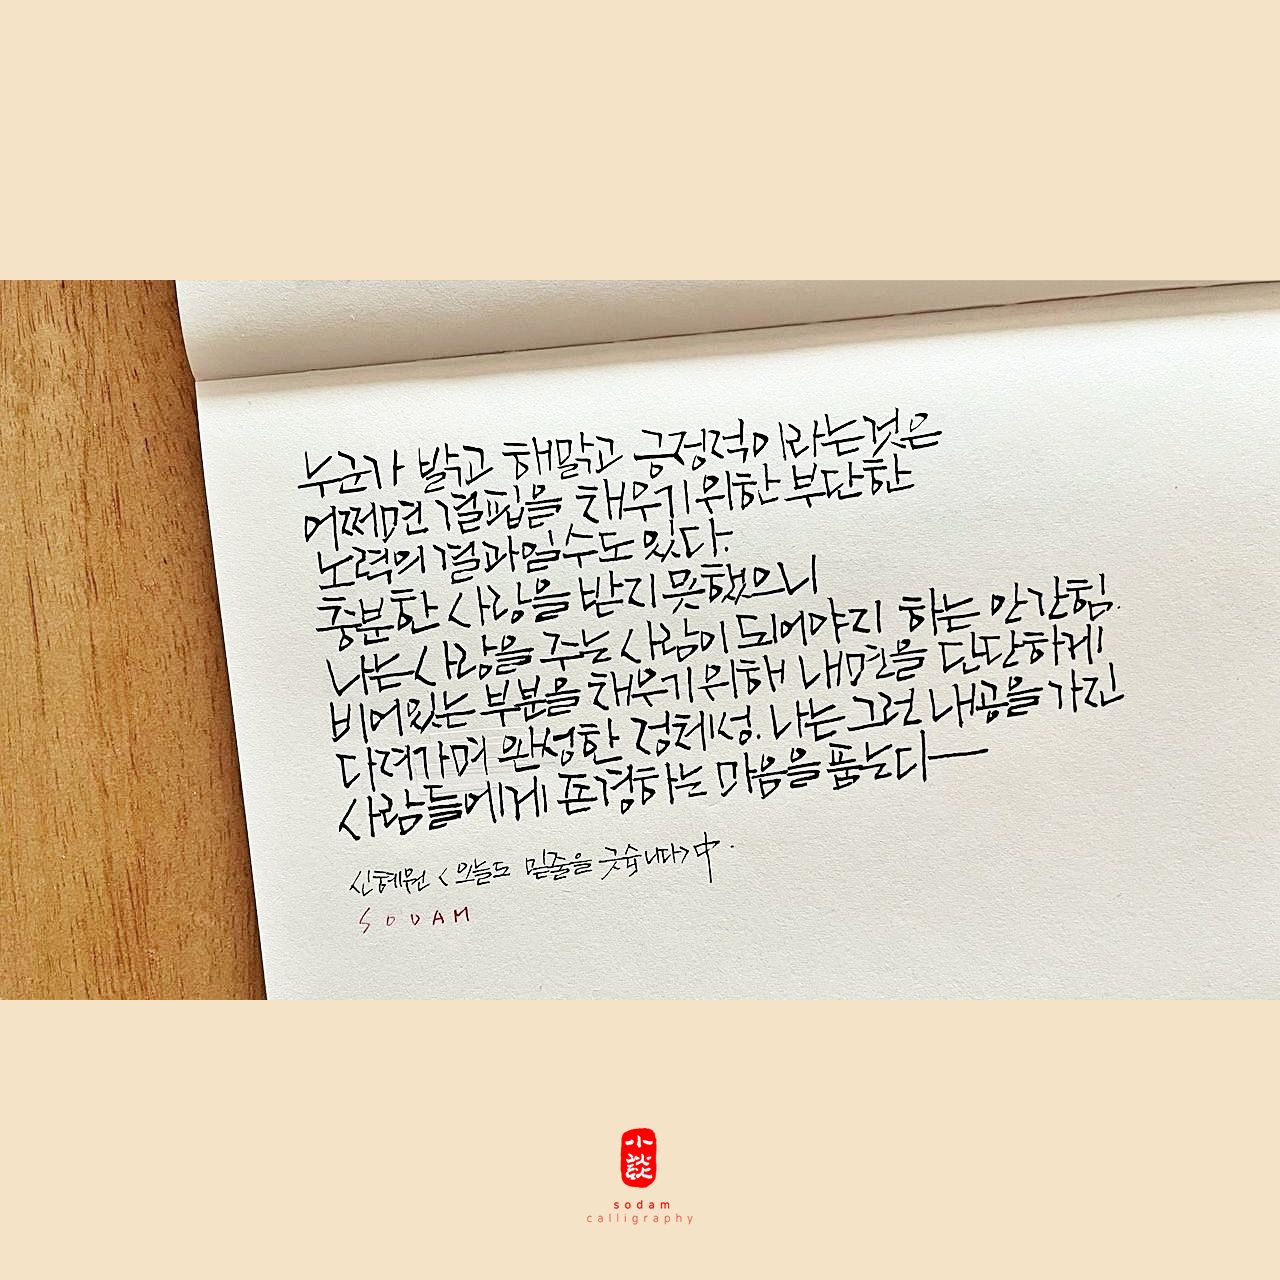 누군가 밝고 해맑고 긍정적이라는것은
어쩌면 결핍을 채우기위한 부단한
노력의 결과일수도 있다.
충분한 사랑을 받지못했으니
나는 사랑을 주는 사람이 되어야지 하는 안간힘.
비어있는 부분을 채우기위해 내면을 단단하게
다져가며 완성한 정체성. 나는 그런 내공을 가진
사람들에게 존경하는 마음을 품는다
신혜원 <오늘도 밑줄을 긋습니다> 中.
SODAM
小談
sodam
calligraphy